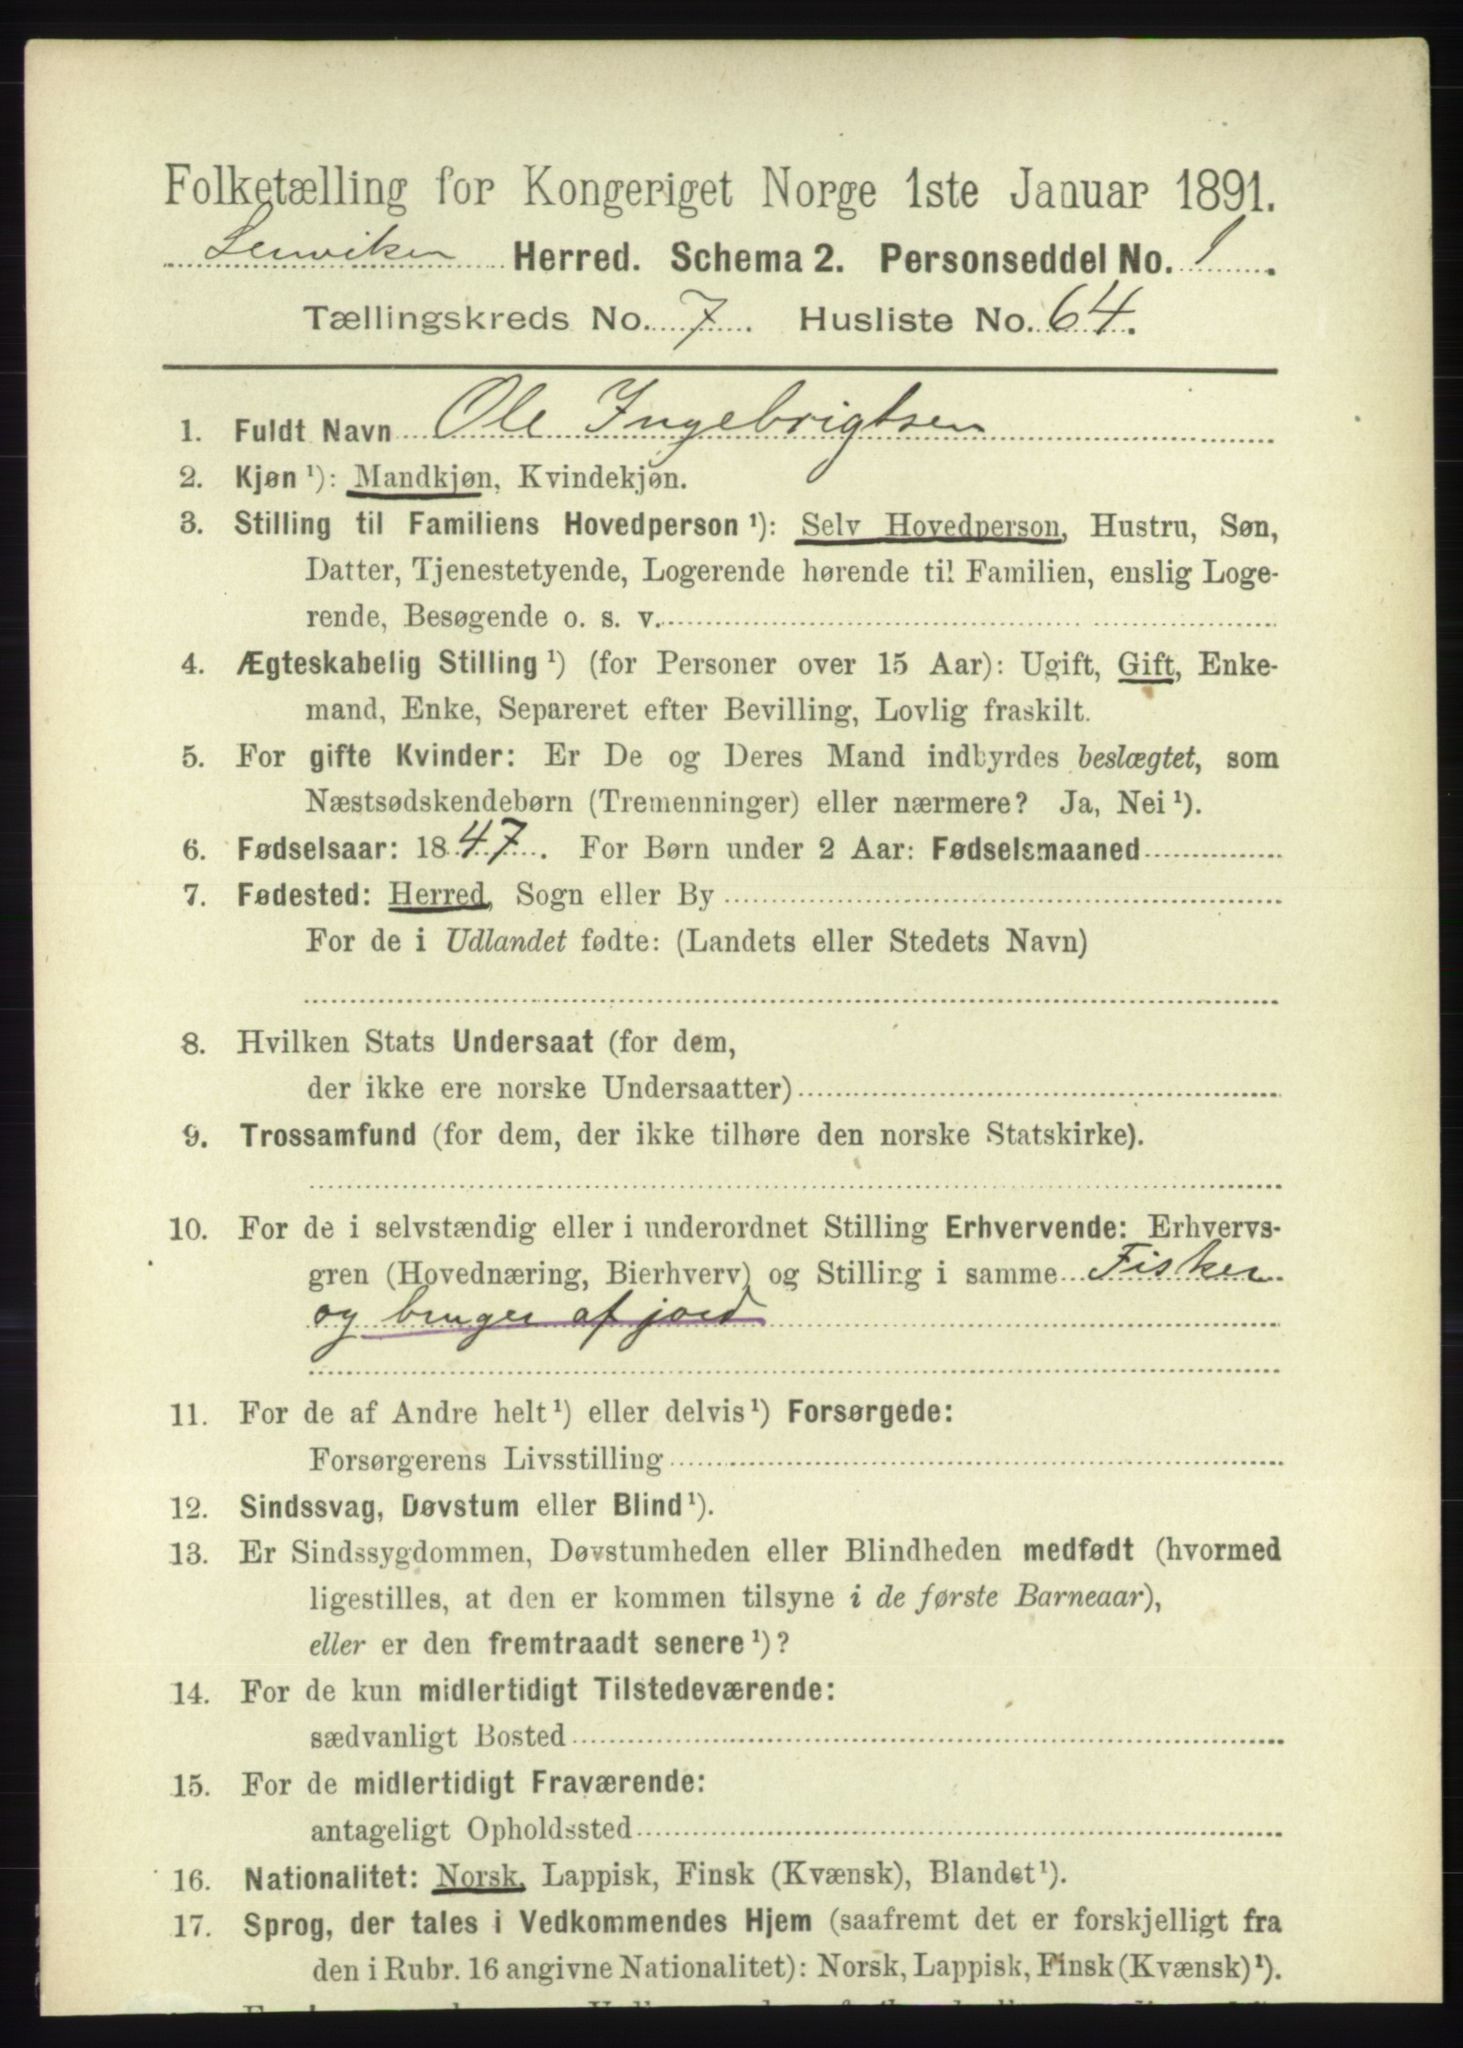 Folketælling for Kongeriget Norge 1ste Januar 1891.
Lenviken Herred. Schema 2. Personseddel No. 1.
Tællingskreds No. 7. Husliste No. 64.
1. Fuldt Navn Ole Ingebrigtsen
2. Kjøn ¹): Mandkjøn, Kvindekjøn.
3. Stilling til Familiens Hovedperson ¹): Selv Hovedperson, Hustru, Søn,
Datter, Tjenestetyende, Logerende hørende til Familien, enslig Loge-
rende, Besøgende o. s. v.
4. Ægteskabelig Stilling ¹) (for Personer over 15 Aar): Ugift, Gift, Enke-
mand, Enke, Separeret efter Bevilling, Lovlig fraskilt.
5. For gifte Kvinder: Er De og Deres Mand indbyrdes beslægtet, som
Næstsødskendebørn (Tremenninger) eller nærmere? Ja, Nei ¹).
6. Fødselsaar: 1847. For Børn under 2 Aar: Fødselsmaaned
7. Fødested: Herred, Sogn eller By
For de i Udlandet fødte: (Landets eller Stedets Navn)
8. Hvilken Stats Undersaat (for dem,
der ikke ere norske Undersaatter)
9. Trossamfund (for dem, der ikke tilhøre den norske Statskirke).
10. For de i selvstændig eller i underordnet Stilling Erhvervende: Erhvervs-
gren (Hovednæring, Bierhverv) og Stilling i samme Fisker
og bruger af jord
11. For de af Andre helt ¹) eller delvis ¹) Forsørgede:
Forsørgerens Livsstilling
12. Sindssvag, Døvstum eller Blind ¹).
13. Er Sindssygdommen, Døvstumheden eller Blindheden medfødt (hvormed
ligestilles, at den er kommen tilsyne i de første Barneaar),
eller er den fremtraadt senere ¹)?
14. For de kun midlertidigt Tilstedeværende:
sædvanligt Bosted
15. For de midlertidigt Fraværende:
antageligt Opholdssted
16. Nationalitet: Norsk, Lappisk, Finsk (Kvænsk), Blandet ¹).
17. Sprog, der tales i Vedkommendes Hjem (saafremt det er forskjelligt fra
den i Rubr. 16 angivne Nationalitet): Norsk, Lappisk, Finsk (Kvænsk) ¹).